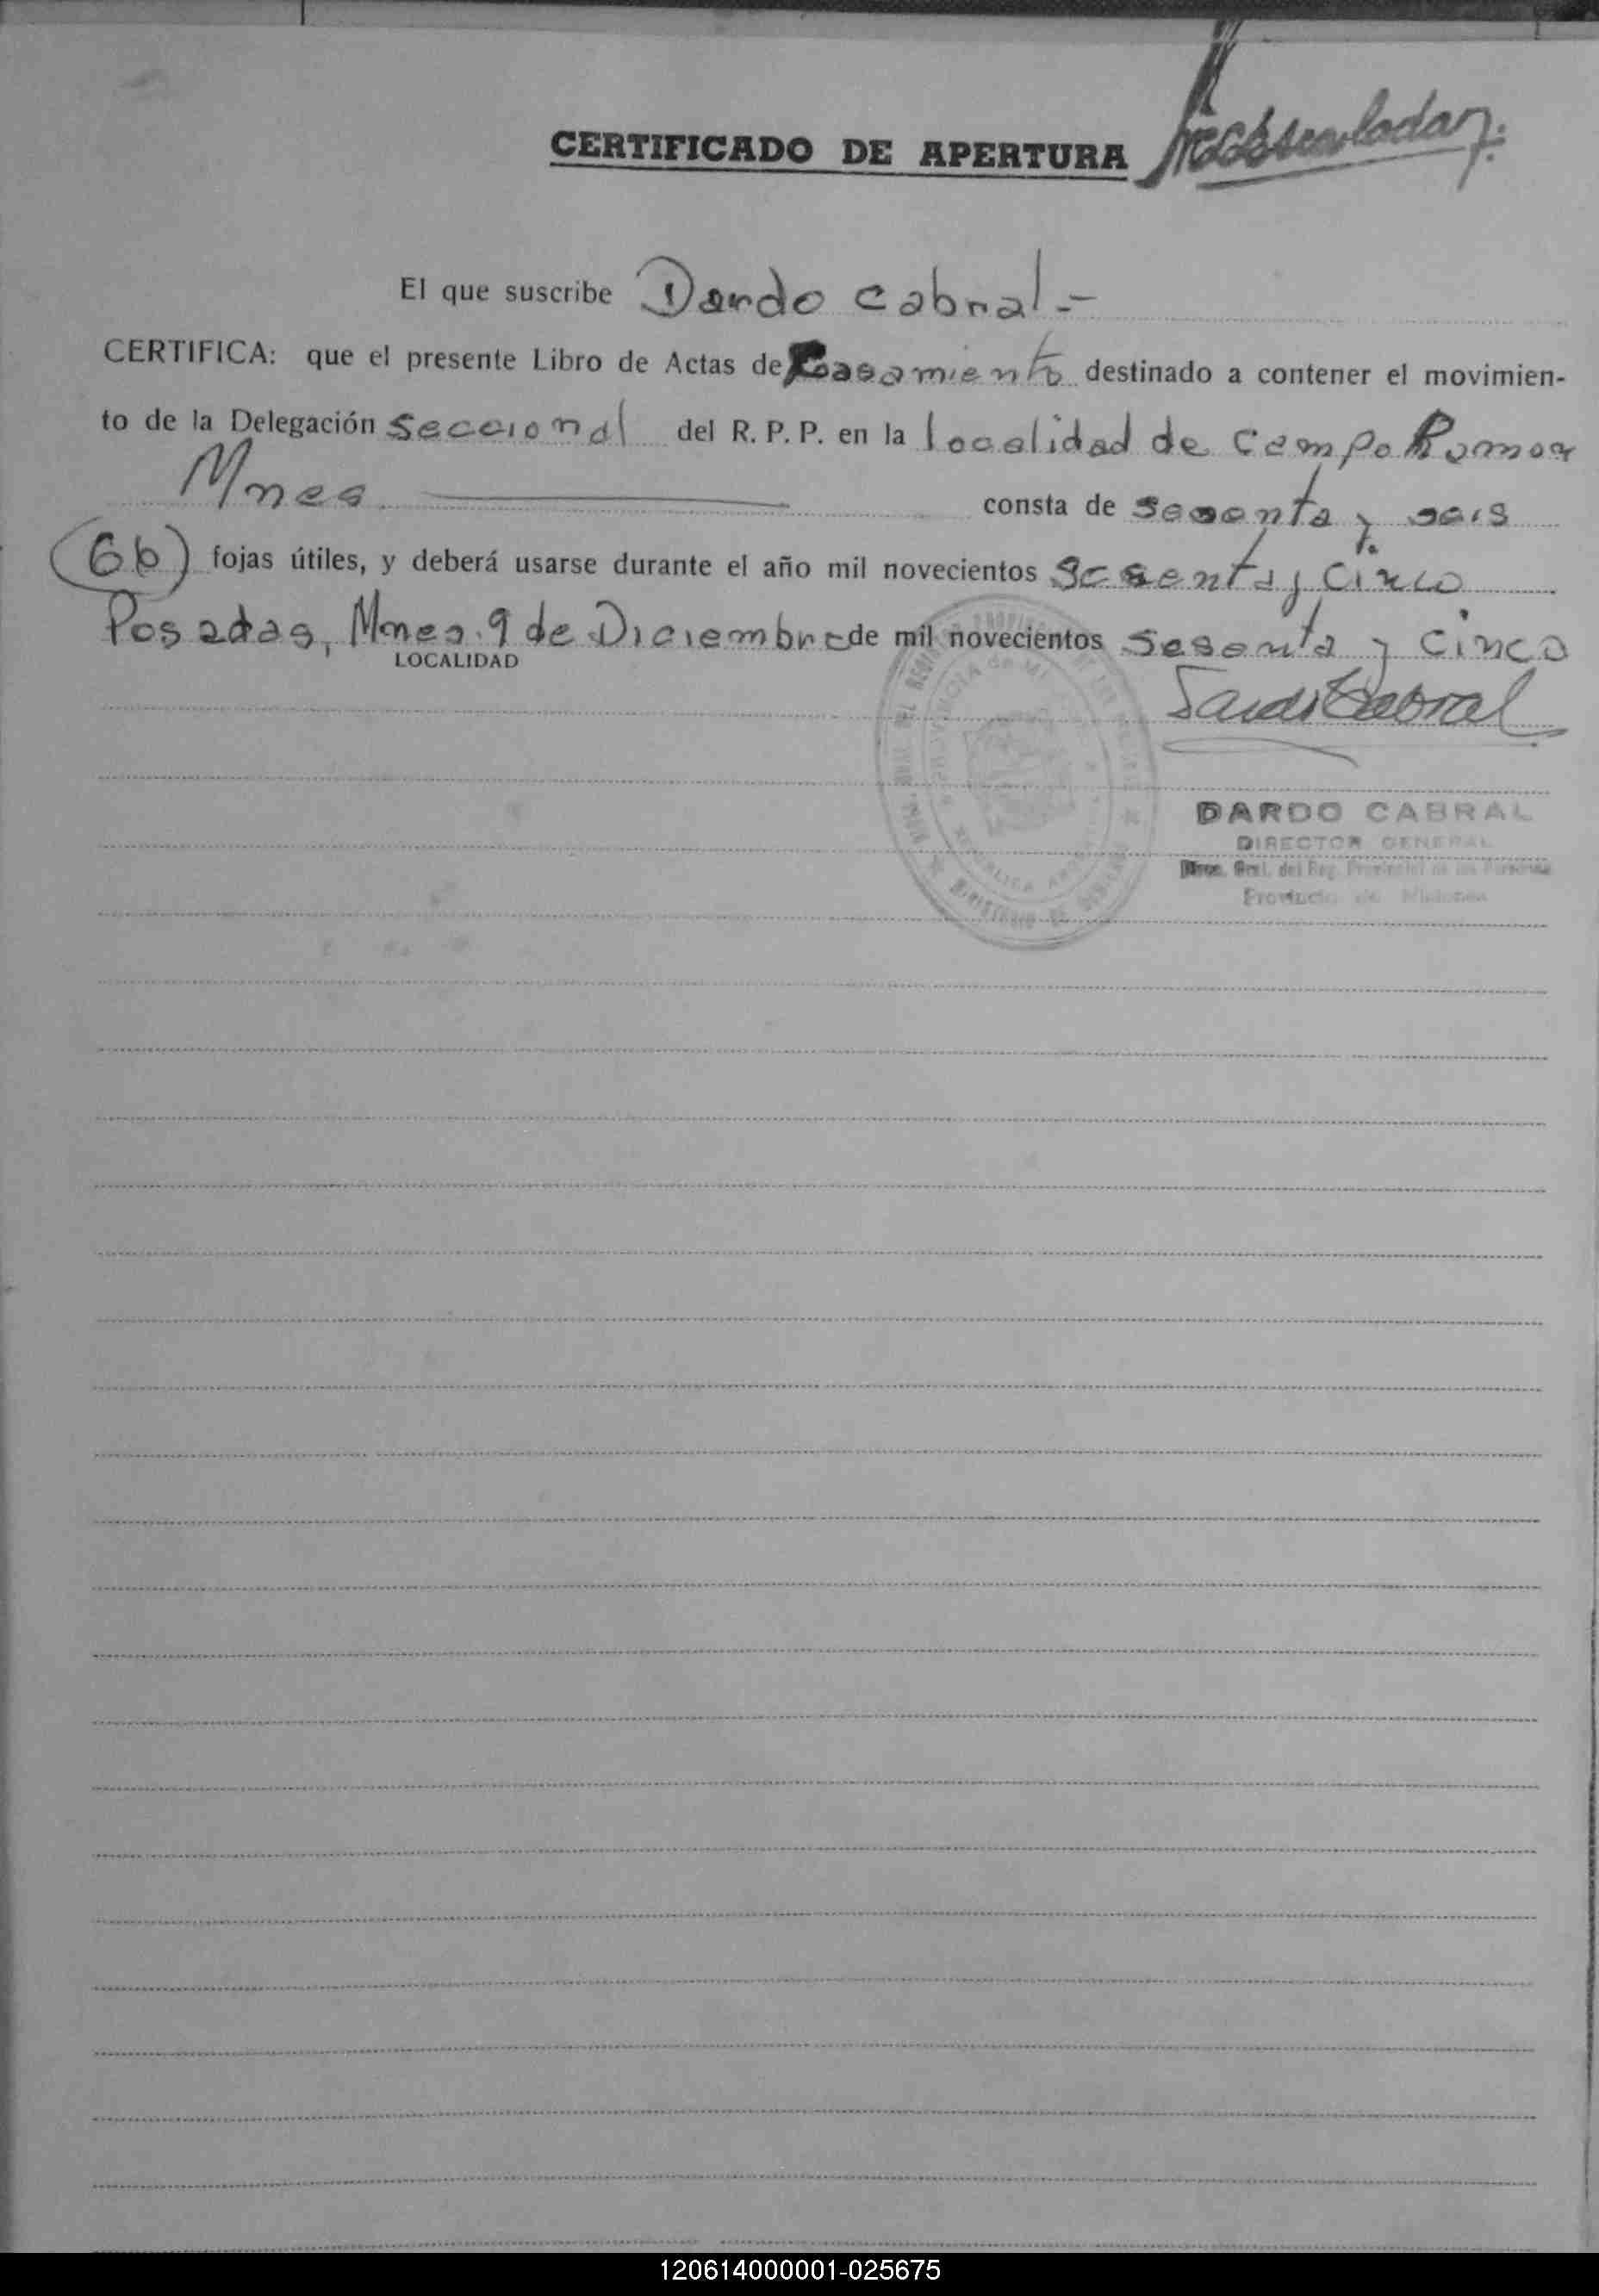 CERTIFICADO DE APERTURA
El que suscribe Dardo Cabral.-
CERTIFICA: que el presente Libro de Actas de Casamiento destinado a contener el movimien-
to de la Delegación Seccional del R. P. P. en la localidad de Campo Ramon
Mnes consta de sesenta y seis
(66) fojas útiles, y deberá usarse durante el año mil novecientos Sesenta y Cinco
Posadas, Mnes. 9 de Diciembre de mil novecientos Sesenta y Cinco
LOCALIDAD
Dardo Cabral
DARDO CABRAL
DIRECTOR GENERAL
Direc. Gral. del Reg. Provincial de las Personas
Provincia de Misiones
120614000001-025675